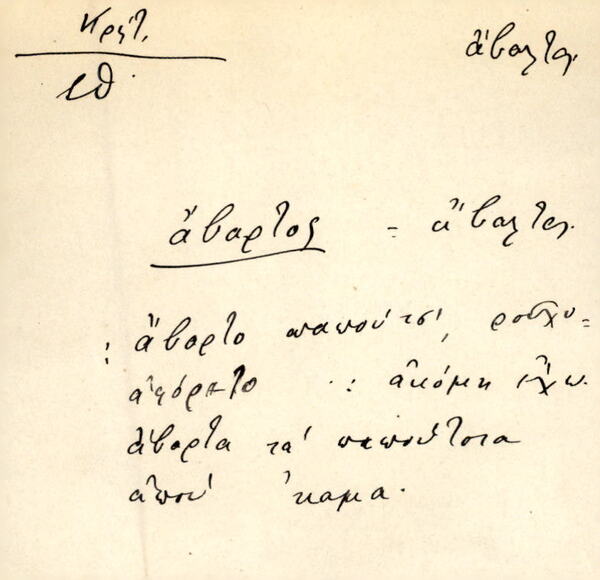 Κρήτ.
ἄβαλτος
ἄβαρτος = ἄβαλτος.
: ἄβαρτο παπούτσι, ροῦχο =
ἀφόρετο : ἀκόμη ἔχω
ἄβαρτα τὰ παπούτσια
ἀποὺ 'καμα.